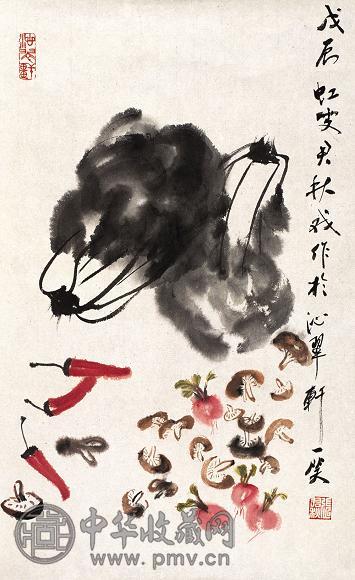 戊辰虹叟君秋戏作於沁翠軒一笑
中华收藏网
www.pmv.cn